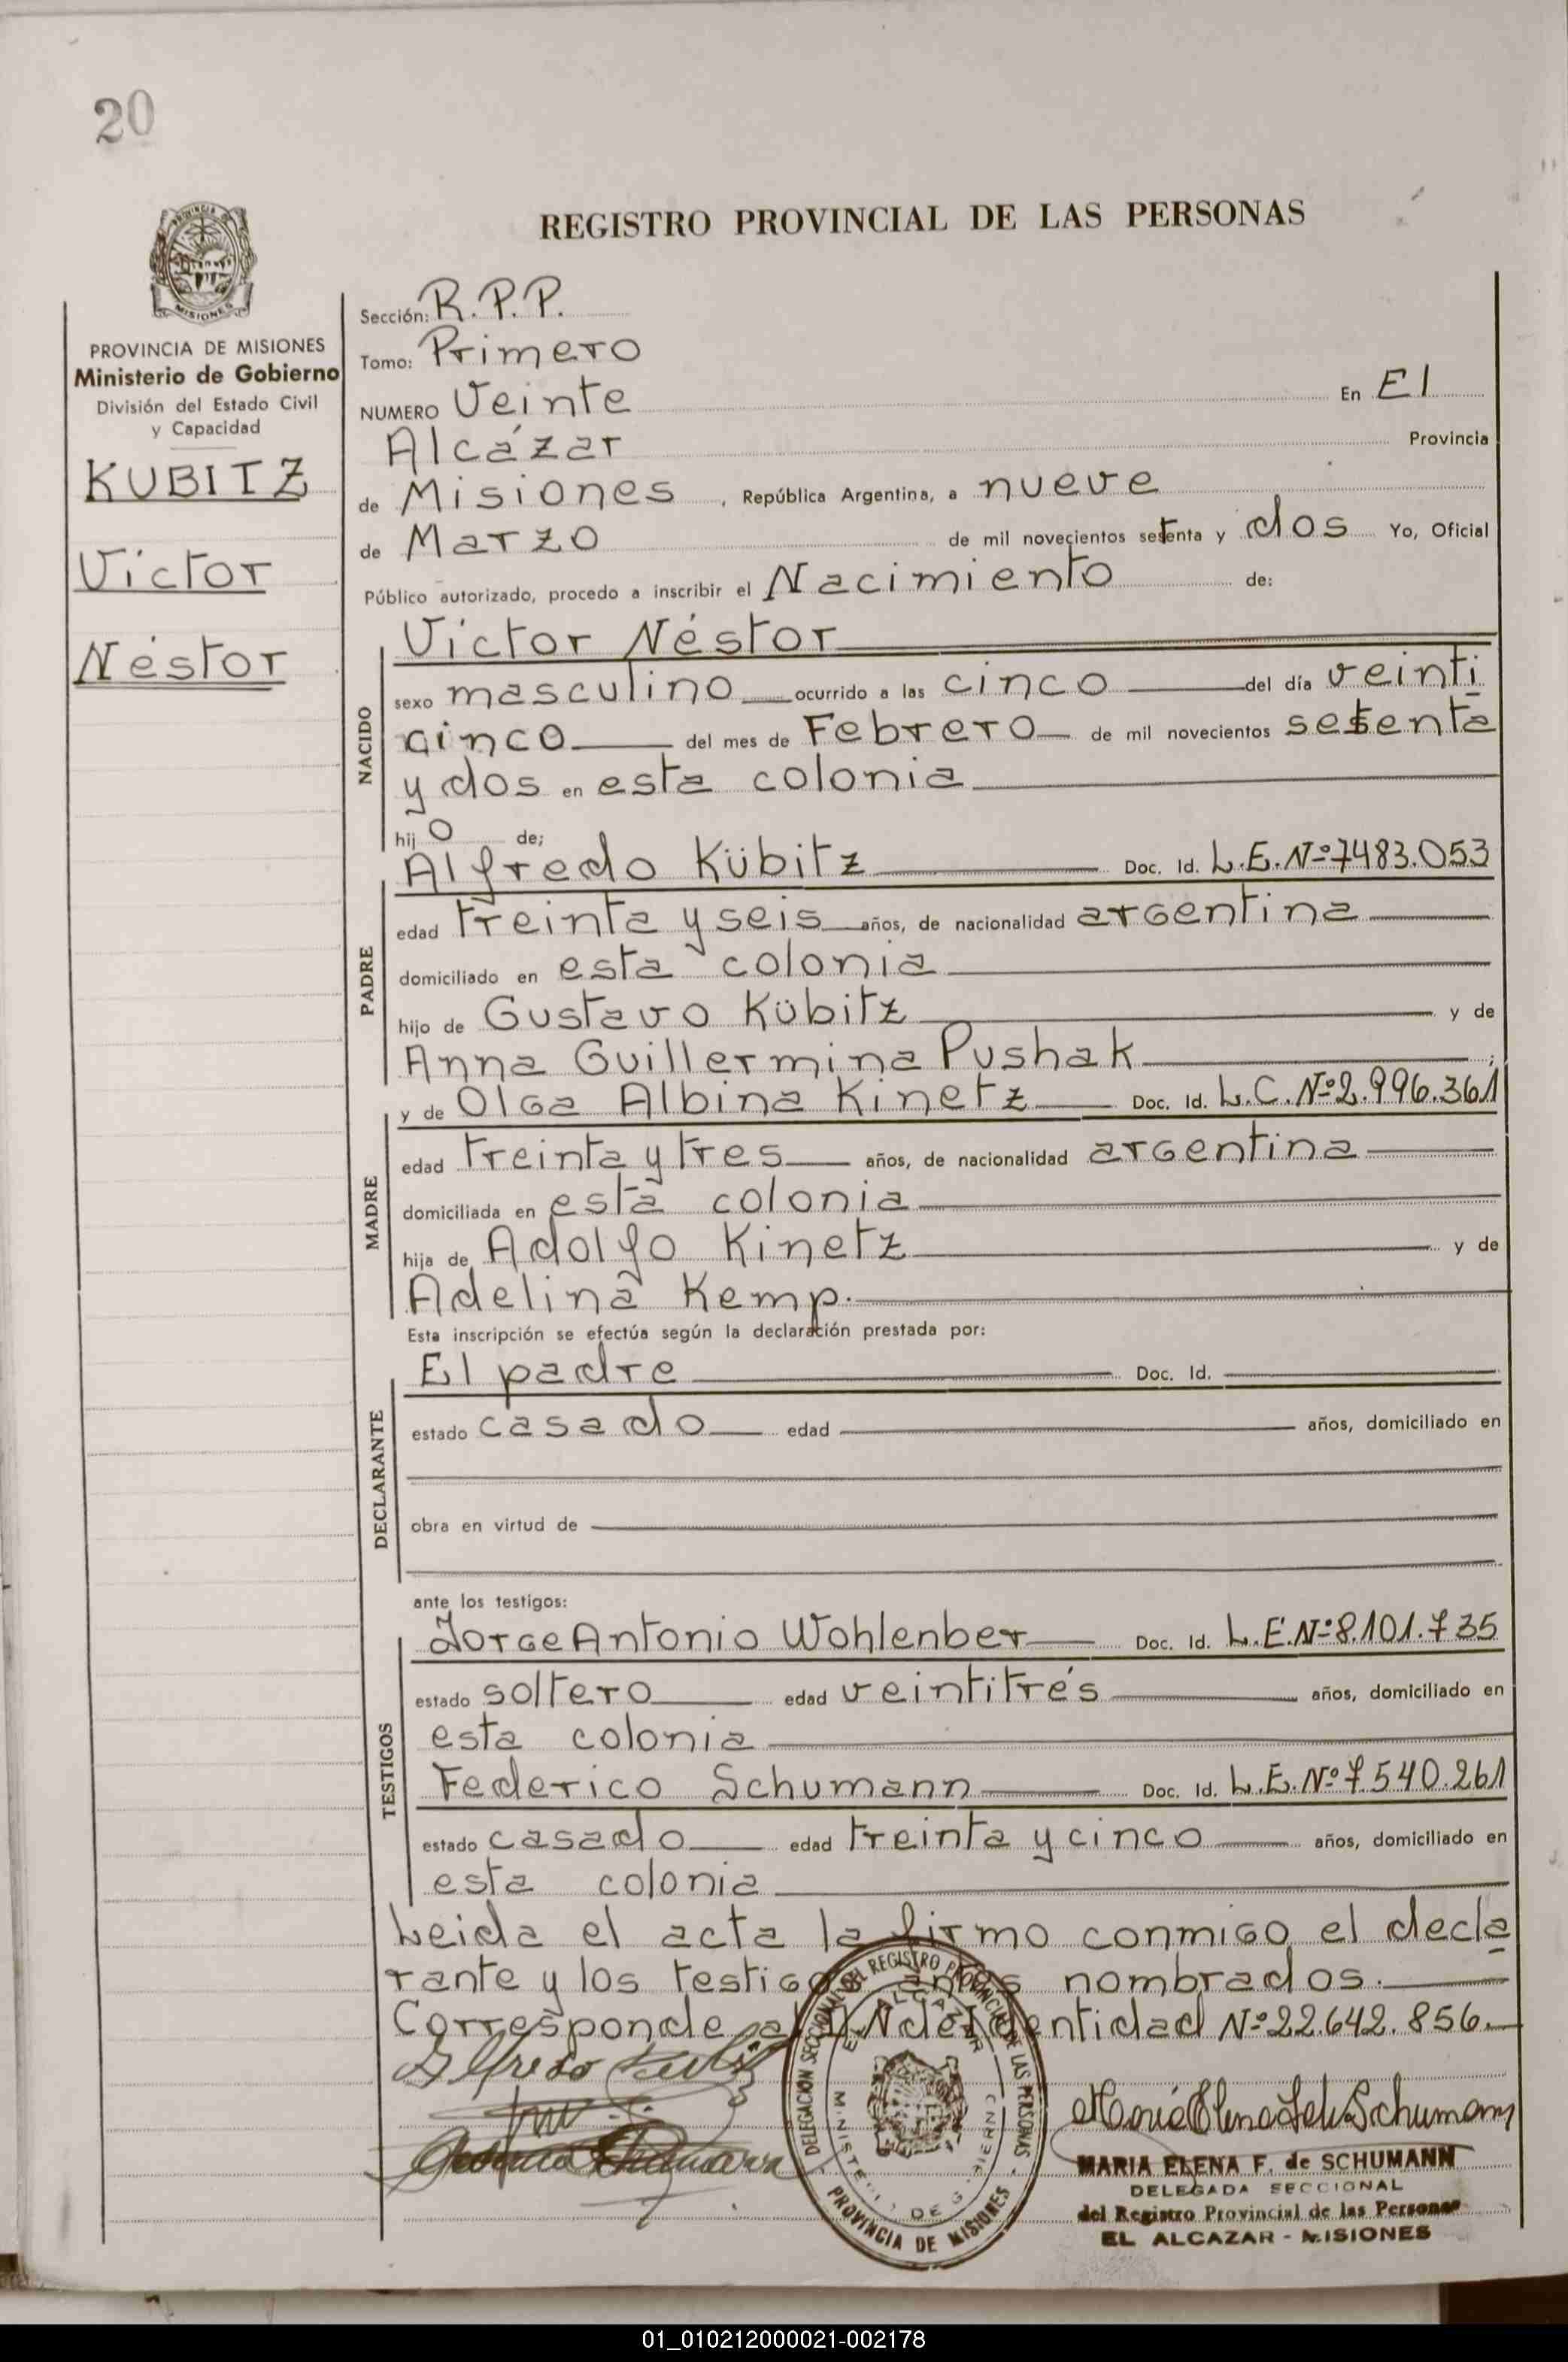 20
REGISTRO PROVINCIAL DE LAS PERSONAS
MISIONES
PROVINCIA DE MISIONES
Ministerio de Gobierno
División del Estado Civil
y Capacidad
KUBITZ
Víctor
Néstor
Sección: R.P.P.
Tomo: Primero
NUMERO Veinte En El
Alcázar Provincia
de Misiones, República Argentina, a nueve
de Marzo de mil novecientos setenta y dos Yo, Oficial
Público autorizado, procedo a inscribir el Nacimiento de:
NACIDO
Víctor Néstor
sexo masculino ocurrido a las cinco del día veinti
cinco del mes de Febrero de mil novecientos setenta
y dos en esta colonia
hijo de;
PADRE
Alfredo Kübitz Doc. Id. L.E. Nº 7483.053
edad treinta y seis años, de nacionalidad argentina
domiciliado en esta colonia
hijo de Gustavo Kübitz y de
Anna Guillermina Pushak ;
MADRE
y de Olga Albina Kinetz Doc. Id. L.C. Nº 2.996.361
edad treinta y tres años, de nacionalidad argentina
domiciliada en esta colonia
hija de Adolfo Kinetz y de
Adelina Kemp.
Esta inscripción se efectúa según la declaración prestada por:
DECLARANTE
El padre Doc. Id.
estado casado edad años, domiciliado en
obra en virtud de
ante los testigos:
TESTIGOS
Jorge Antonio Wohlenber Doc. Id. L.E. Nº 8.101.735
estado soltero edad veintitrés años, domiciliado en
esta colonia
Federico Schumann Doc. Id. L.E. Nº 7540.261
estado casado edad treinta y cinco años, domiciliado en
esta colonia
Leida el acta la firmo conmigo el decla
rante y los testigos antes nombrados.
Corresponde al D.N de Identidad Nº 22.642.856.
DELEGACIÓN SECCIONAL DEL REGISTRO PROVINCIAL DE LAS PERSONAS
EL ALCAZAR
MINISTERIO DE GOBIERNO
PROVINCIA DE MISIONES
Alfredo Kubitz
María Elena F de Schumann
MARIA ELENA F. de SCHUMANN
DELEGADA SECCIONAL
del Registro Provincial de las Personas
EL ALCAZAR - MISIONES
01_010212000021-002178